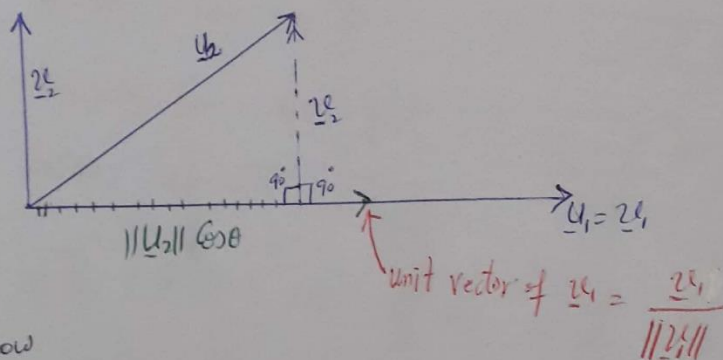 u̲₂
v̲₂
v̲₂
90° 90°
u̲₁ = v̲₁
||u̲₂|| Cosθ
unit vector of v̲₁ = v̲₁ / ||v̲₁||
ow